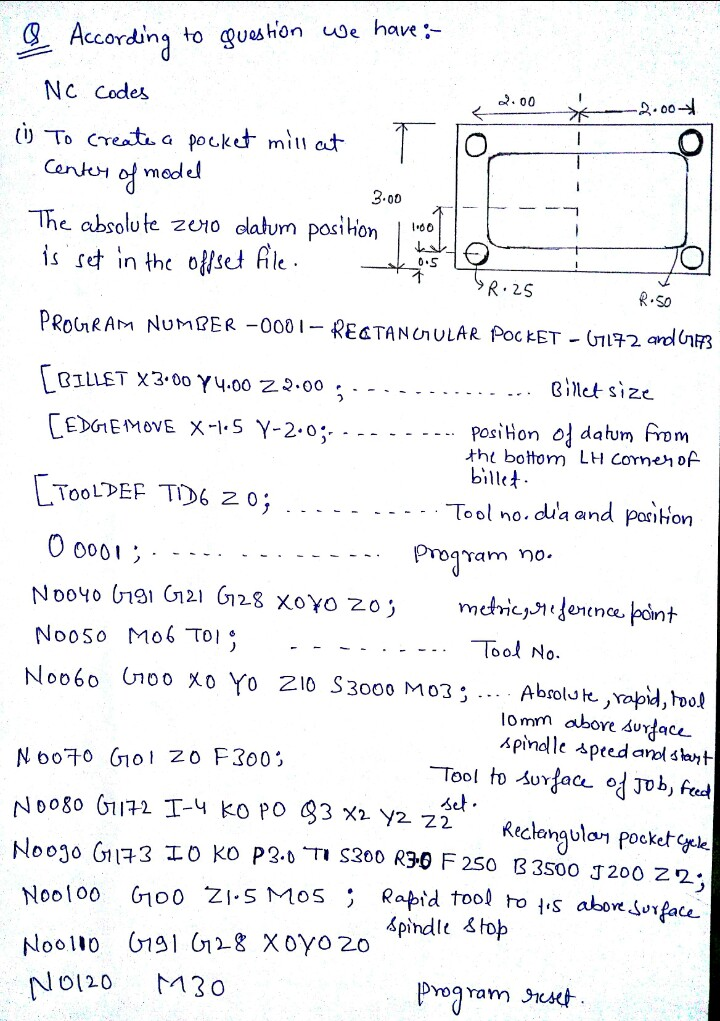 Q According to question we have :-
NC codes
(i) To create a pocket mill at
center of model
The absolute zero datum position
is set in the offset file.
2.00
2.00
3.00
1.00
0.5
R.25
R.50
PROGRAM NUMBER -0001- RECTANGULAR POCKET - G172 and G173
[BILLET X3.00 Y4.00 Z2.00 ; - - - - - - - - - - - - ... Billet size
[EDGEMOVE X-1.5 Y-2.0; - - - - - - - - - position of datum from
the bottom LH corner of
billet.
[TOOLDEF T1D6 Z0; . . . . . - - - - - - Tool no. dia and position
O 0001 ; . - - - - - - - - - - - - - . program no.
N0040 G91 G21 G28 X0Y0 Z0; metric, reference point
N0050 M06 T01; - - - - - - . . . Tool No.
N0060 G00 X0 Y0 Z10 S3000 M03; .... Absolute, rapid, tool
10mm above surface
spindle speed and start
N0070 G01 Z0 F300;
Tool to surface of Job, feed
set.
N0080 G172 I-4 K0 P0 Q3 X2 Y2 Z2
Rectangular pocket cycle
N0090 G173 I0 K0 P3.0 T1 S300 R3.0 F250 B3500 J200 Z2;
N00100 G00 Z1.5 M05 ; Rapid tool to 1.5 above surface
spindle stop
N00110 G91 G28 X0Y0Z0
N0120 M30 program reset.